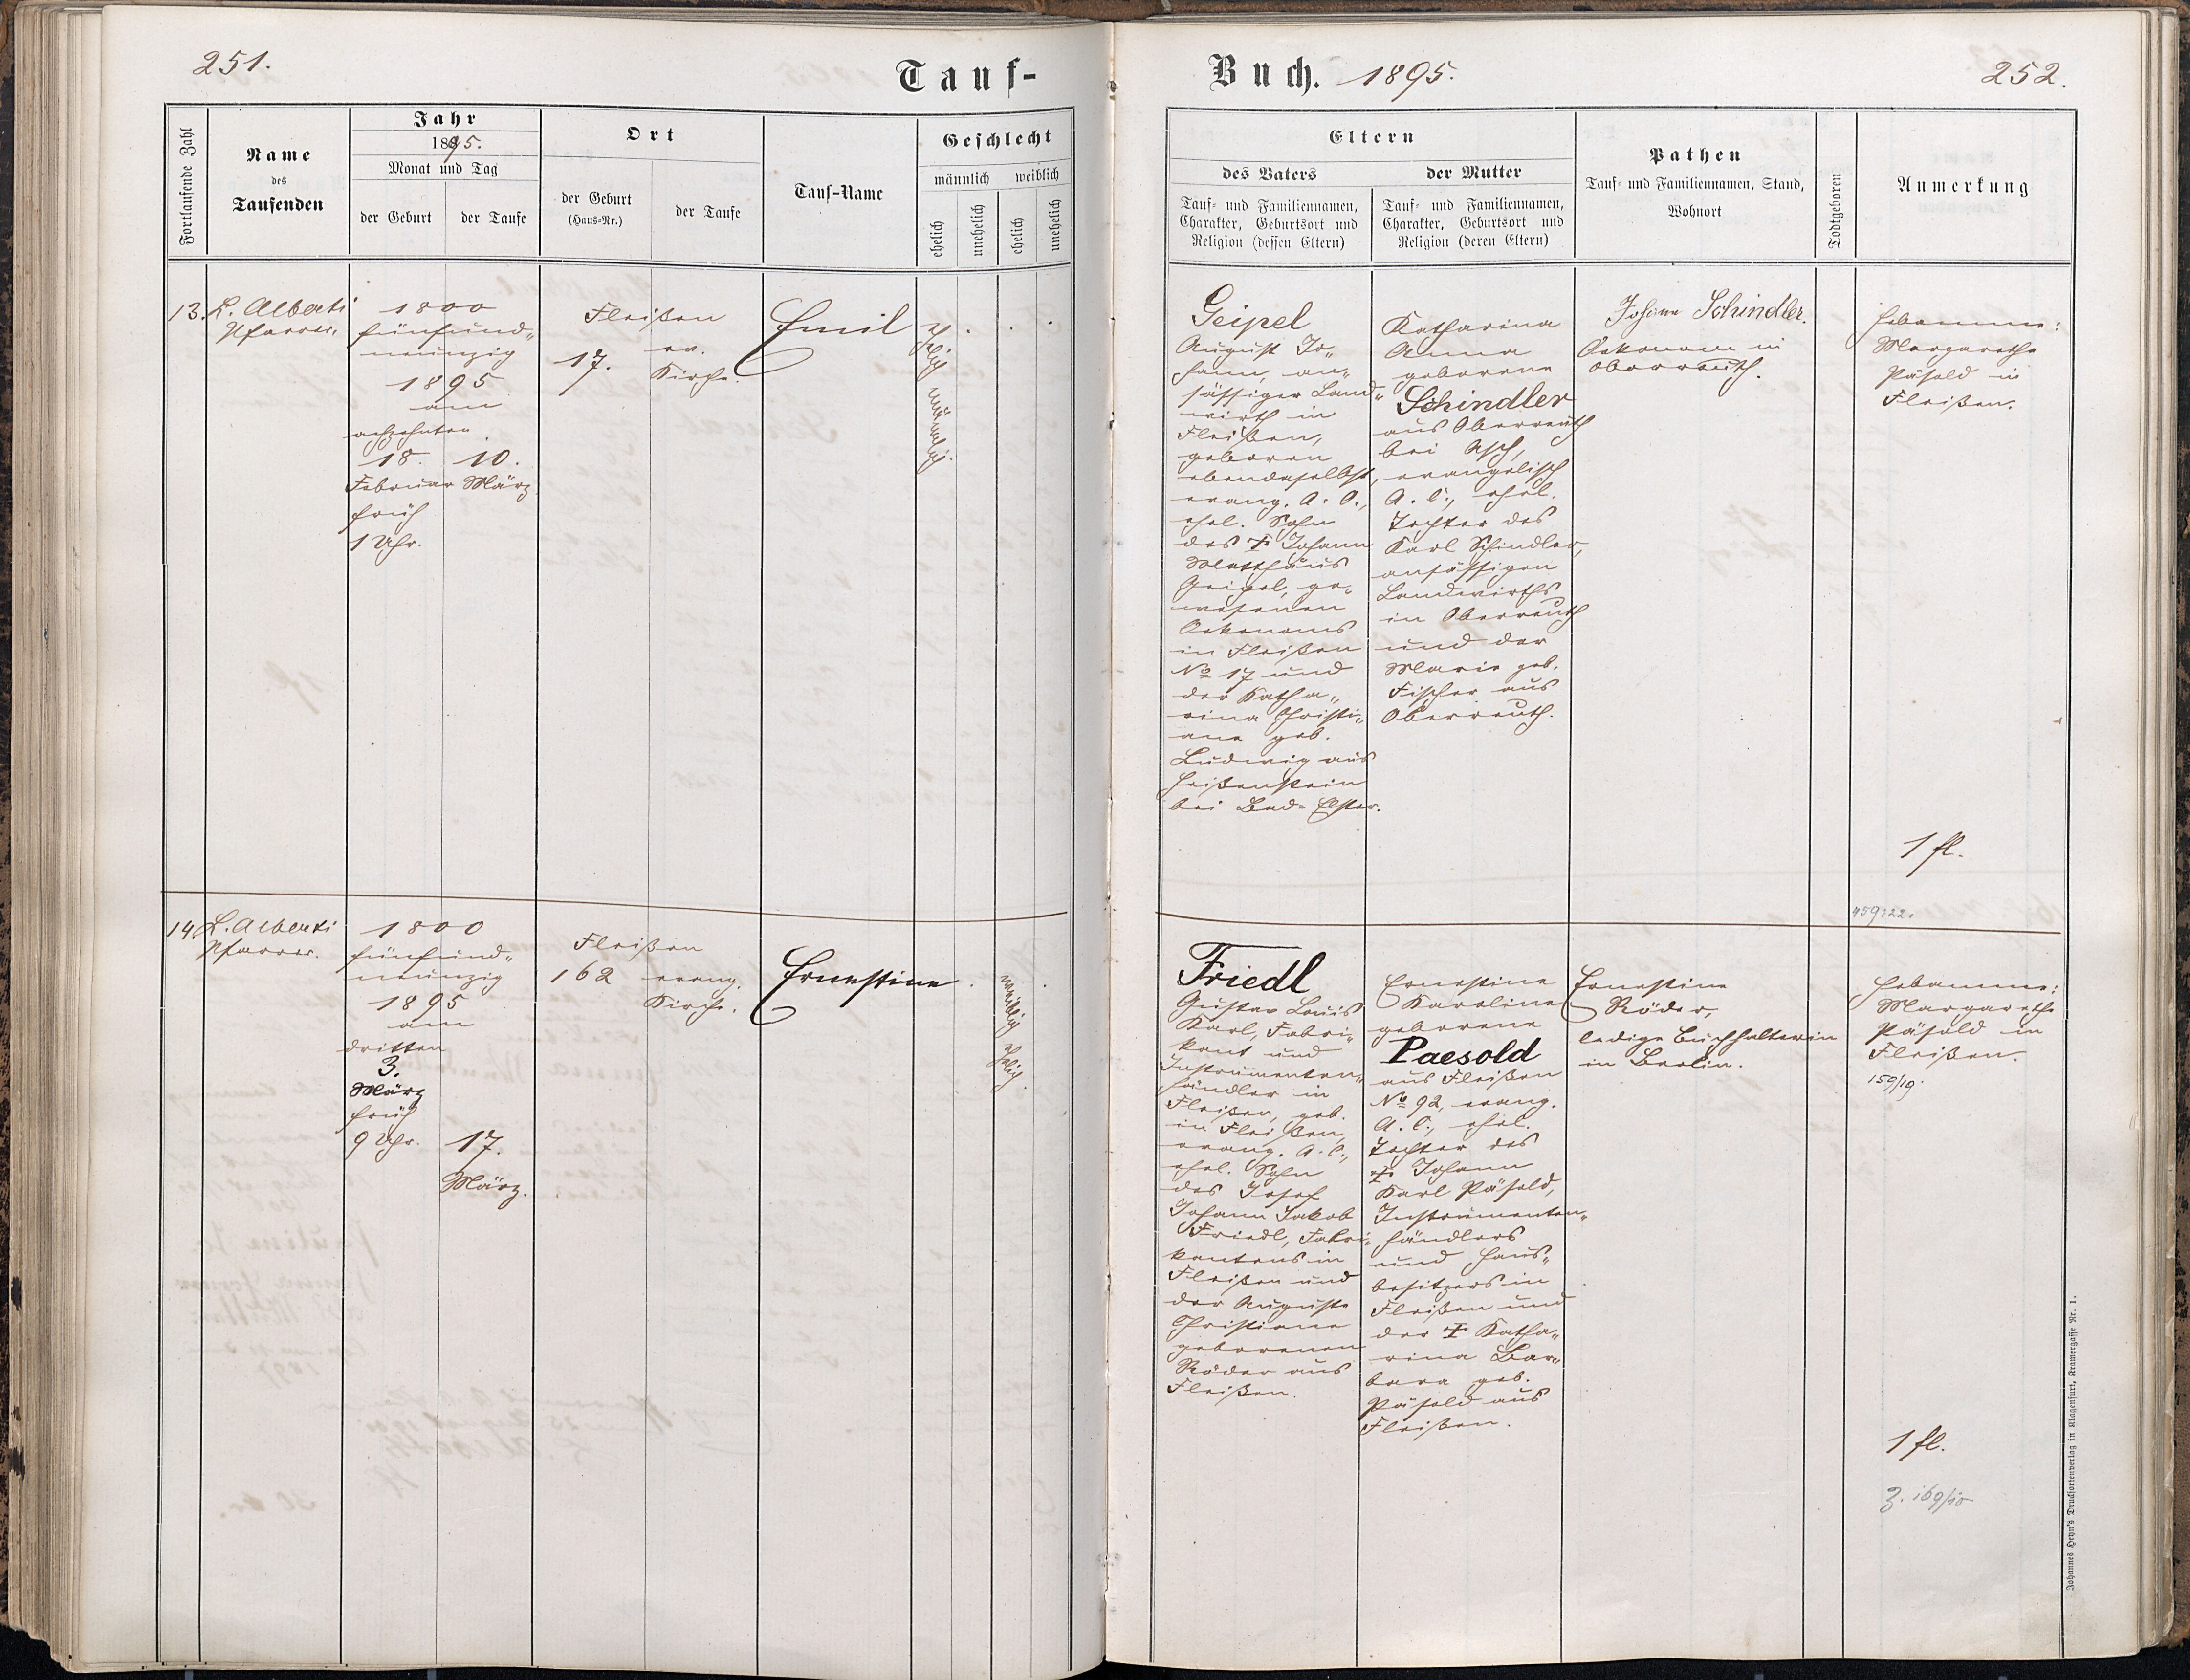 251.
Tauf-
Buch. 1895.
252.
Fortlaufende Zahl
Name
des
Taufenden
Jahr
1895.
Monat und Tag
der Geburt
der Taufe
Ort
der Geburt
(Haus-Nr.)
der Taufe
Tauf-Name
Geschlecht
männlich
weiblich
ehelich
unehelich
ehelich
unehelich
Eltern
des Vaters
Tauf- und Familiennamen,
Charakter, Geburtsort und
Religion (dessen Eltern)
der Mutter
Tauf- und Familiennamen,
Charakter, Geburtsort und
Religion (deren Eltern)
Pathen
Tauf- und Familiennamen, Stand,
Wohnort
Todtgeboren
Anmerkung
13.
L. Alberti
Pfarrer.
1800
fünfund„
neunzig
1895
am
achzehnten
18.
Februar
früh
1 Uhr.
10.
März
Fleißen
17.
ev.
Kirche.
Emil
ehelich
männlich.
Geipel
August Jo„
hann, an„
sässiger Land„
wirth in
Fleißen,
geboren
ebendaselbst,
evang. A. C.,
ehel. Sohn
des † Johann
Matthäus
Geipel, ge„
wesenen
Oekonoms
in Fleißen
No 17 und
der Katha„
rina Christi„
ane geb.
Ludwig aus
Heißenstein
bei Bad-Elster.
Katharina
Anna
geborene
Schindler
aus Oberreuth
bei Asch,
evangelisch
A. C., ehel.
Tochter des
Karl Schindler,
ansässigen
Landwirths
in Oberreuth
und der
Marie geb.
Fischer aus
Oberreuth.
Johann Schindler.
Oekonom in
Oberreuth.
Hebamme:
Margarethe
Päsold in
Fleißen.
1 fl.
14.
L. Alberti
Pfarrer.
1800
fünfund„
neunzig
1895
am
dritten
3.
März
früh
9 Uhr.
17.
März.
Fleißen
162
evang.
Kirche.
Ernestine
weiblich
ehelich.
Friedl
Gustav Louis
Karl, Fabri„
kant und
Instrumenten„
händler in
Fleißen, geb.
in Fleißen,
evang. A. C.,
ehel. Sohn
des Josef
Johann Jakob
Friedl, Fabri„
kantens in
Fleißen und
der Auguste
Christiane
geborenen
Röder aus
Fleißen.
Ernestine
Karoline
geborene
Paesold
aus Fleißen
No 92, evang.
A. C., ehel.
Tochter des
† Johann
Karl Päsold,
Instrumenten„
händlers
und Haus„
besitzers in
Fleißen und
der † Katha„
rina Bar„
bara geb.
Päsold aus
Fleißen.
Ernestine
Röder,
ledige Buchhalterin
in Berlin.
459/22.
Hebamme:
Margarethe
Päsold in
Fleißen.
159/19.
1 fl.
Z. 169/10
Johannes Heyn's Drucksortenverlag in Klagenfurt, Kramergasse Nr. 1.